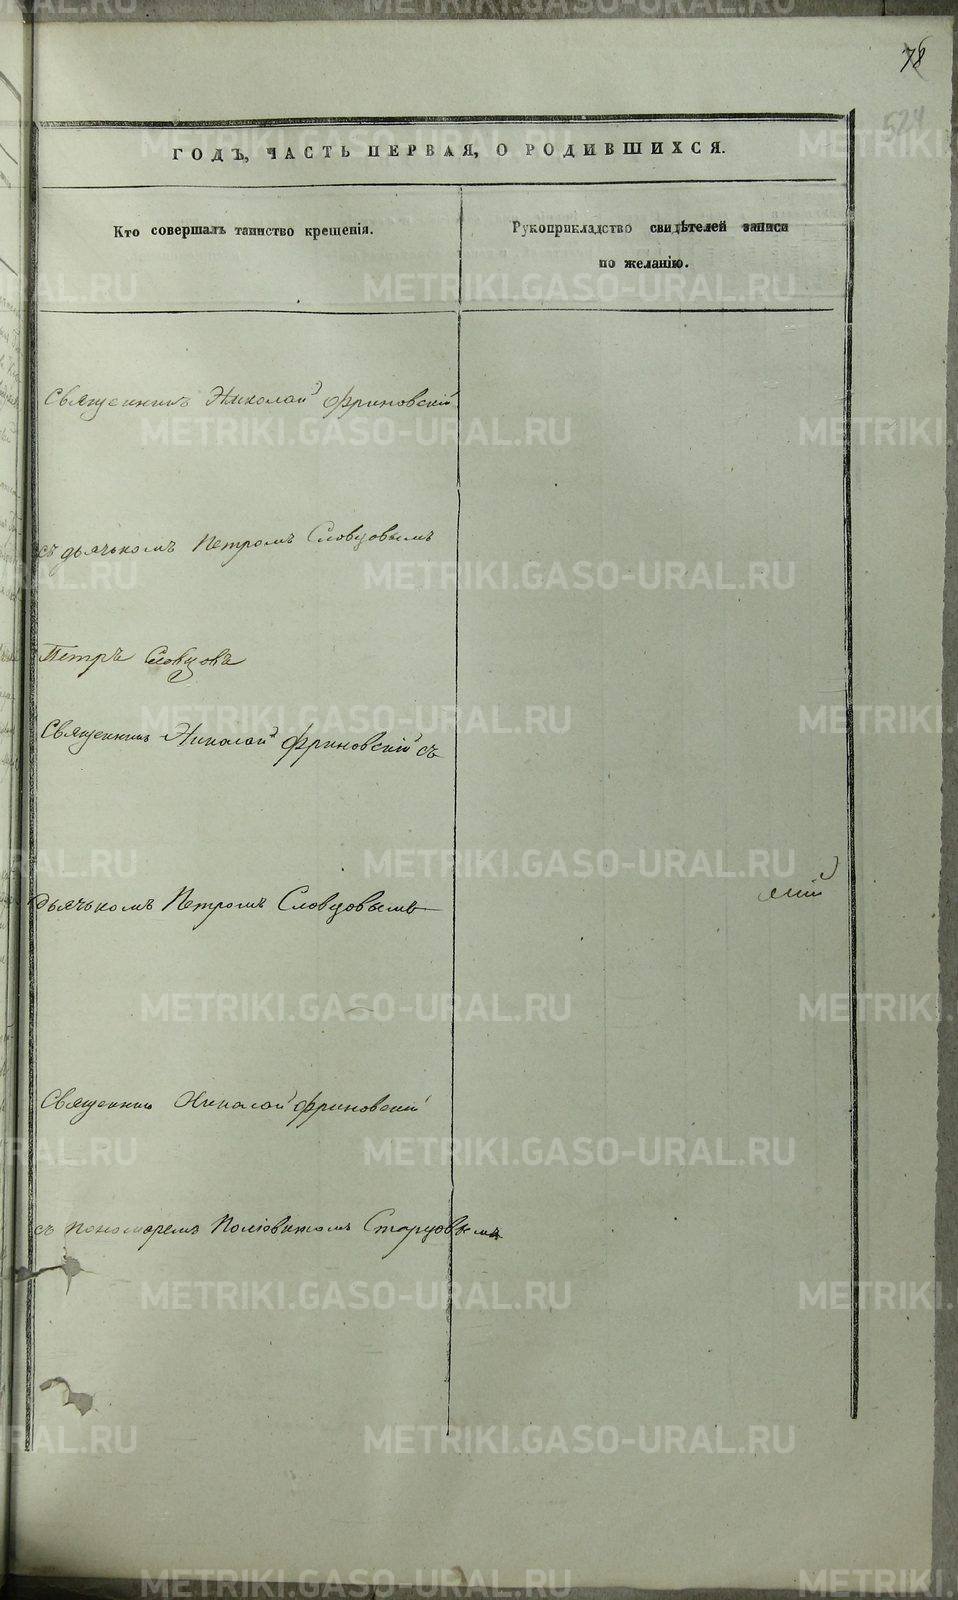 78
524
ГОДЪ, ЧАСТЬ ПЕРВАЯ, О РОДИВШИХСЯ.
Кто совершалъ таинство крещенія.
Рукоприкладство свидѣтелей записи
по желанію.
Священникъ Николай Фриновскій
съ дьячькомъ Петромъ Словцовымъ
Петръ Словцовъ
Священникъ Николай Фриновскій съ
дьячькомъ Петромъ Словцовымъ
Священникъ Николай Фриновскій
съ пономаремъ Старцовымъ
METRIKI.GASO-URAL.RU